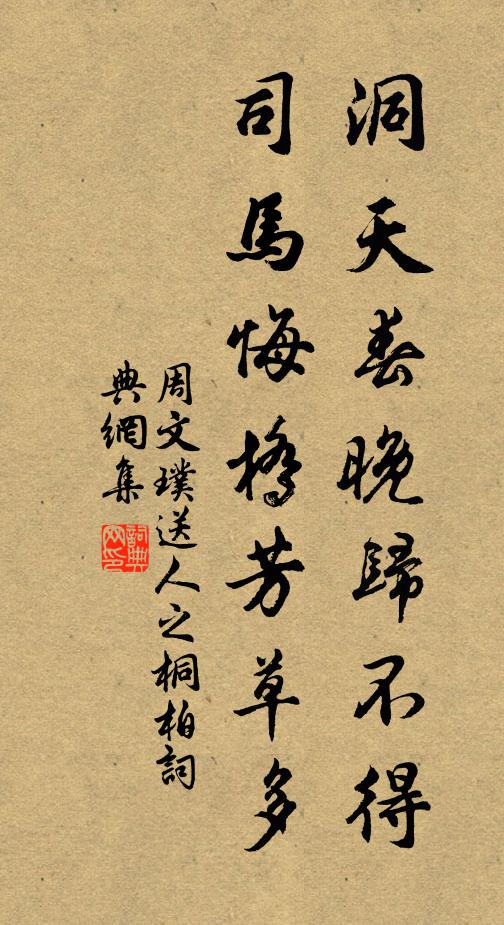 洞天春晚歸不得
司馬悔橋芳草多
周文璞送人之桐柏詞
典網集
詞典
网印